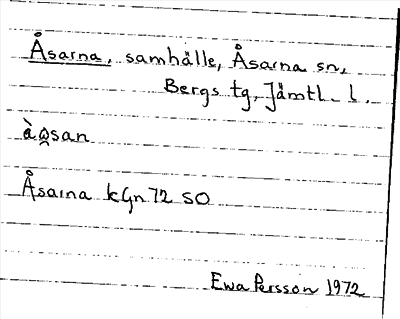 Åsarna, samhälle, Åsarna sn,
Bergs tg, Jämtl. l.
ào̯san
Åsarna kGn 72 SO
Ewa Persson 1972